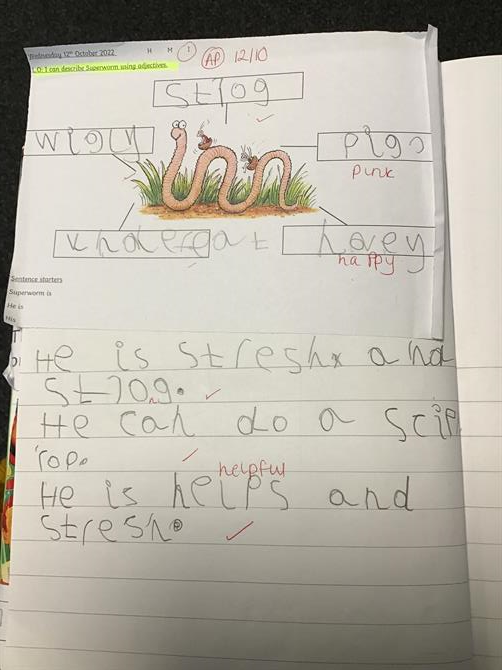 Wednesday 12th October 2022 H M I
L.O: I can describe Superworm using adjectives.
AP 12/10
strog
wigly
pigo
pink
hovey
happy
Sentence starters
Superworm is
He is
His
He is stresh and
strong.
He can do a scip
rop.
helpful
He is helps and
stresh.